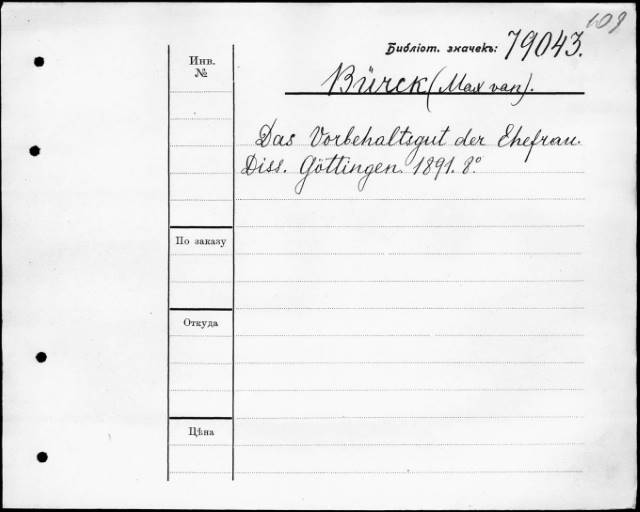 109
Библіот. значекъ: 79043.
Инв.
№
Bürck (Max van).
Das Vorbehaltsgut der Ehefrau.
Diss. Göttingen. 1891. 8°.
По заказу
Откуда
Цѣна